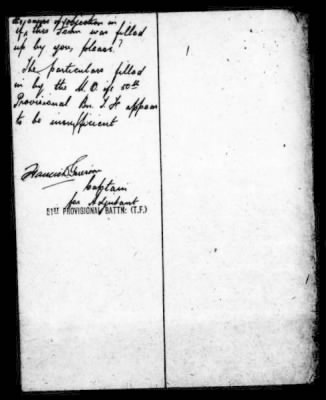 the causes of rejection in
if this Form was filled
up by you, please?
The particulars filled
in by the M.O. i/c 50th
Provisional Bn. T.F. appear
to be insufficient
Captain
for Adjutant
51ST PROVISIONAL BATTN: (T.F.)